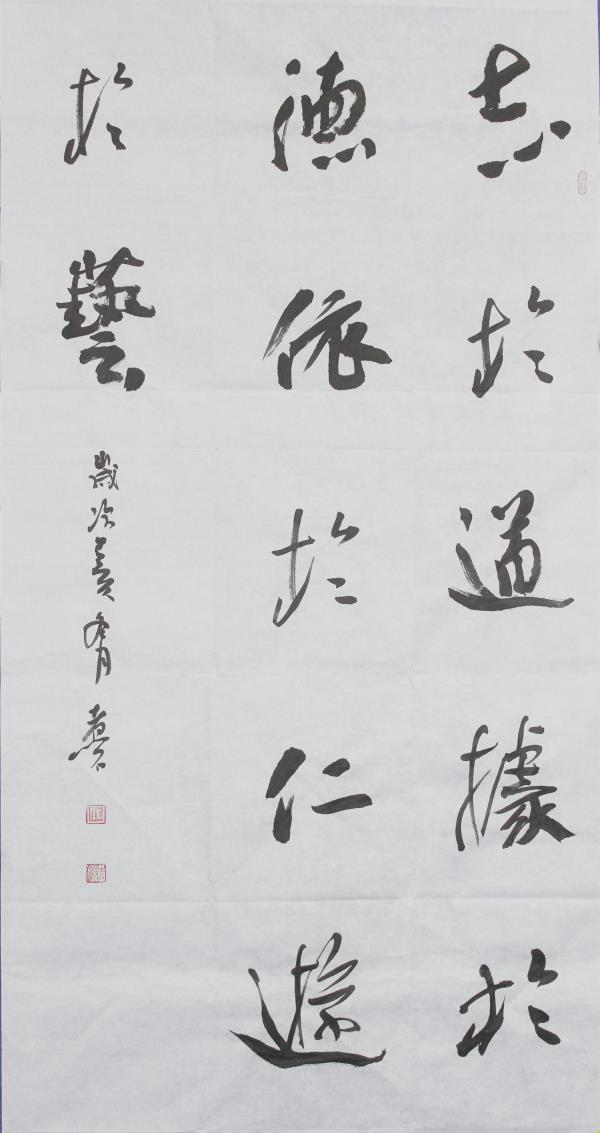 志於道據於
德依於仁遊
於藝
歲次癸